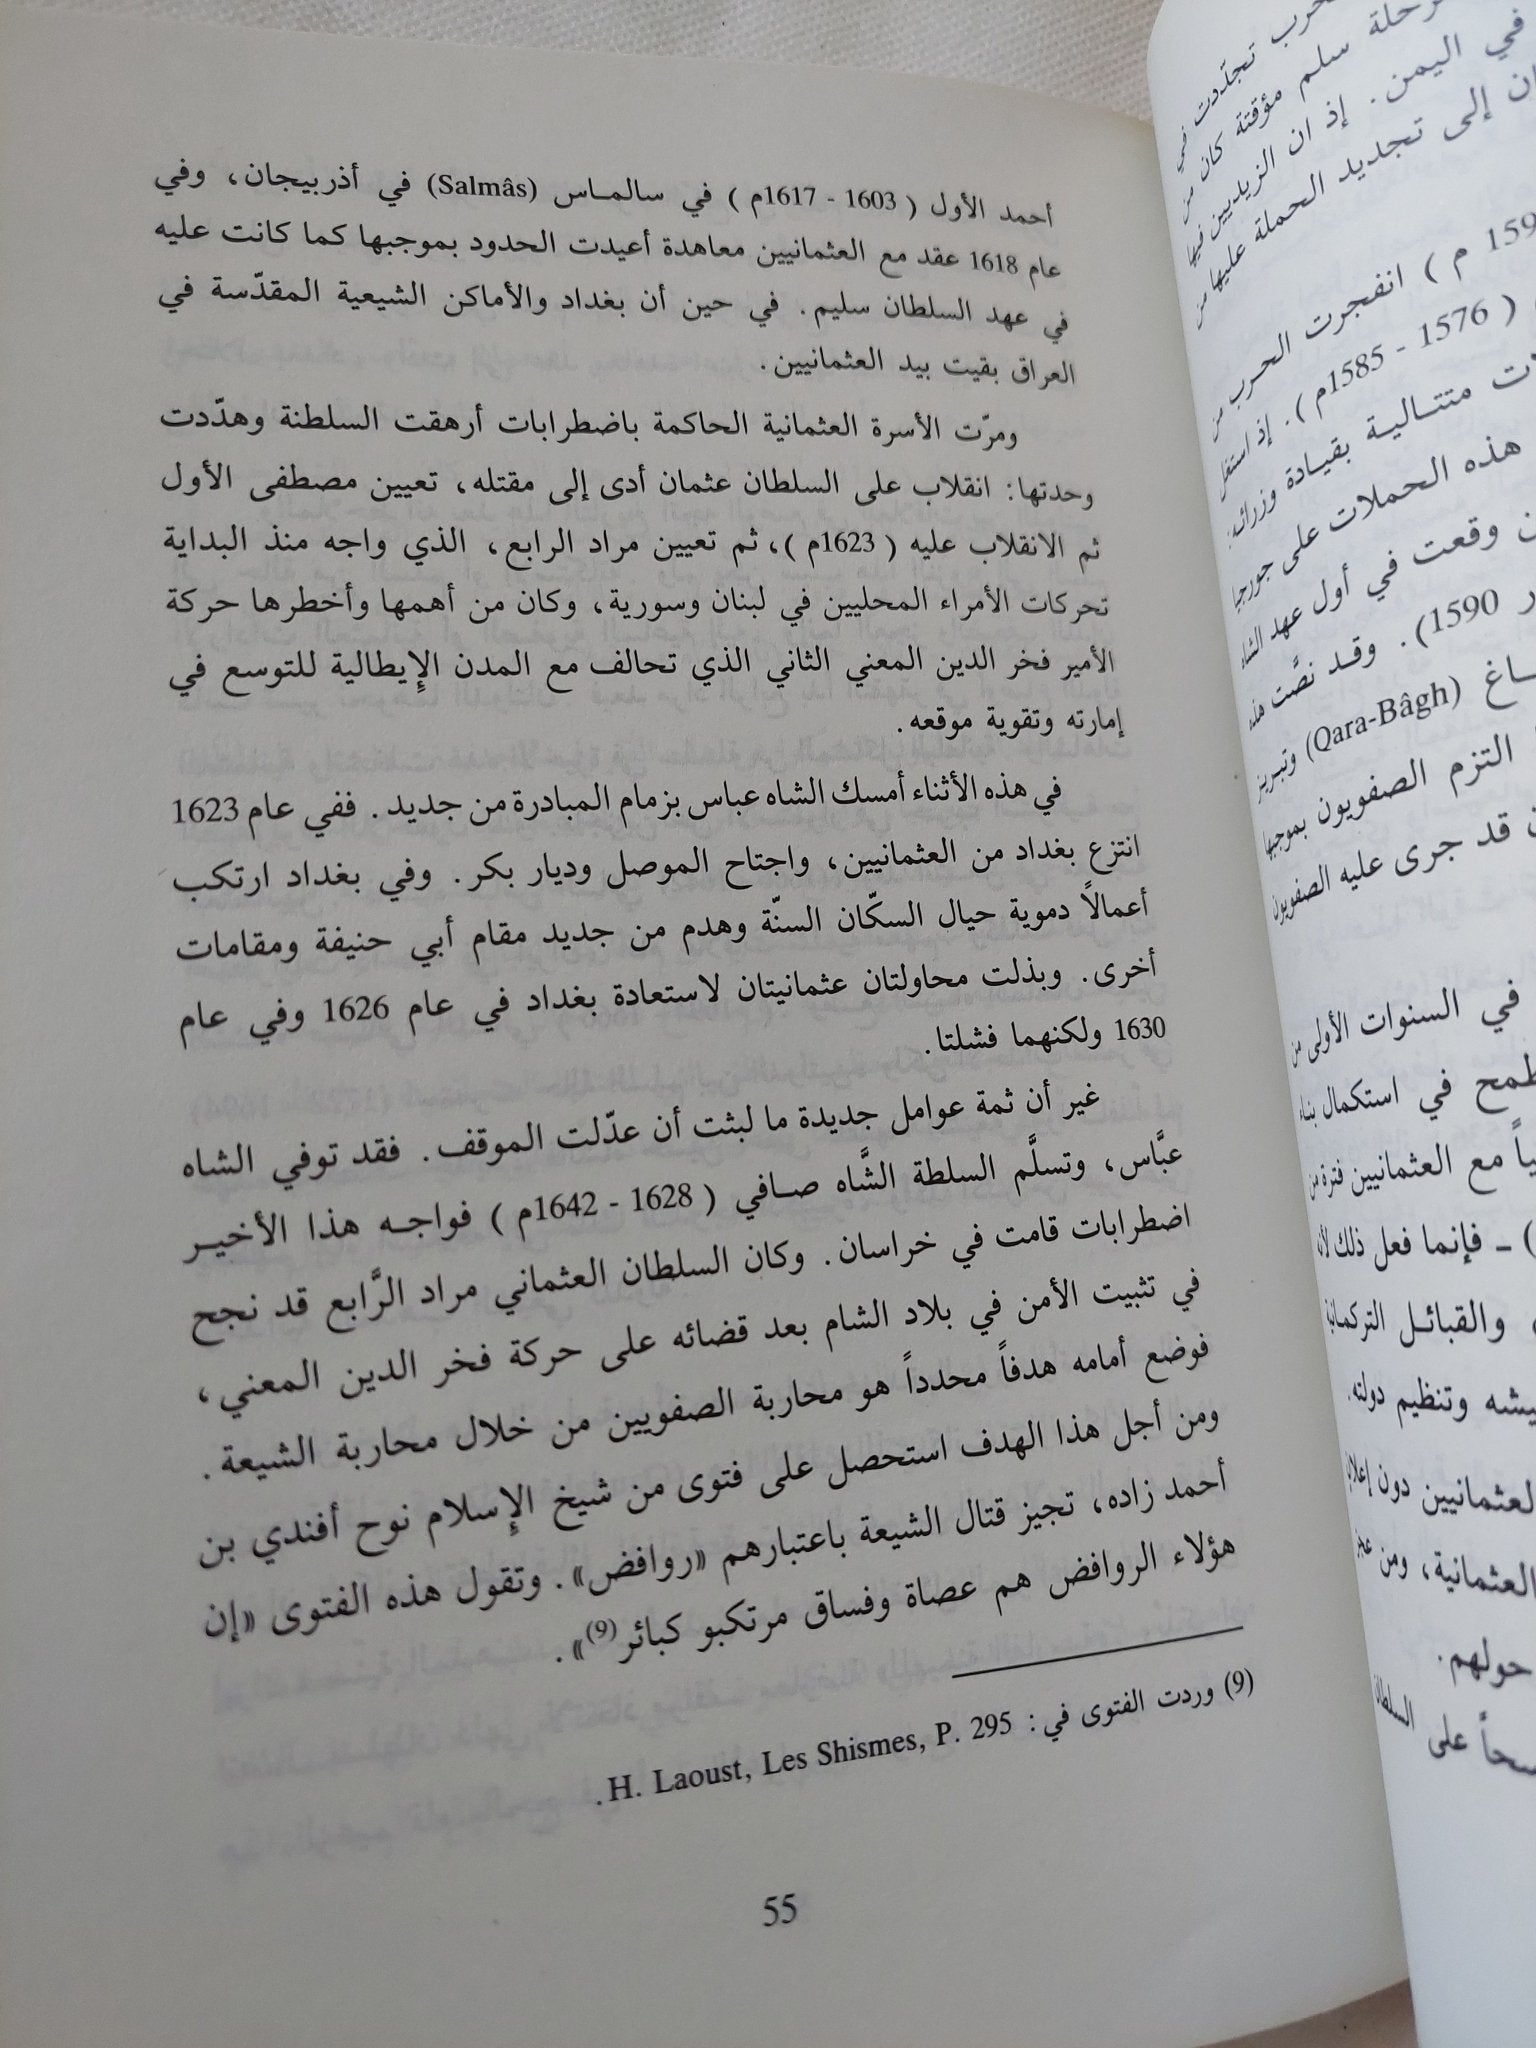 أحمد الأول ( 1603 - 1617م ) في سالماس (Salmâs) في أذربيجان، وفي
عام 1618 عقد مع العثمانيين معاهدة أعيدت الحدود بموجبها كما كانت عليه
في عهد السلطان سليم. في حين أن بغداد والأماكن الشيعية المقدّسة في
العراق بقيت بيد العثمانيين.
ومرّت الأسرة العثمانية الحاكمة باضطرابات أرهقت السلطنة وهدّدت
وحدتها: انقلاب على السلطان عثمان أدى إلى مقتله، تعيين مصطفى الأول
ثم الانقلاب عليه ( 1623م )، ثم تعيين مراد الرابع، الذي واجه منذ البداية
تحركات الأمراء المحليين في لبنان وسورية، وكان من أهمها وأخطرها حركة
الأمير فخر الدين المعني الثاني الذي تحالف مع المدن الإيطالية للتوسع في
إمارته وتقوية موقعه.
في هذه الأثناء أمسك الشاه عباس بزمام المبادرة من جديد. ففي عام 1623
انتزع بغداد من العثمانيين، واجتاح الموصل وديار بكر. وفي بغداد ارتكب
أعمالاً دموية حيال السكّان السنّة وهدم من جديد مقام أبي حنيفة ومقامات
أخرى. وبذلت محاولتان عثمانيتان لاستعادة بغداد في عام 1626 وفي عام
1630 ولكنهما فشلتا.
غير أن ثمة عوامل جديدة ما لبثت أن عدّلت الموقف. فقد توفي الشاه
عبَّاس، وتسلَّم السلطة الشَّاه صافي ( 1628 - 1642م ) فواجه هذا الأخير
اضطرابات قامت في خراسان. وكان السلطان العثماني مراد الرَّابع قد نجح
في تثبيت الأمن في بلاد الشام بعد قضائه على حركة فخر الدين المعني،
فوضع أمامه هدفاً محدداً هو محاربة الصفويين من خلال محاربة الشيعة.
ومن أجل هذا الهدف استحصل على فتوى من شيخ الإسلام نوح أفندي بن
أحمد زاده، تجيز قتال الشيعة باعتبارهم «روافض». وتقول هذه الفتوى «إن
هؤلاء الروافض هم عصاة وفساق مرتكبو كبائر(9)».
(9) وردت الفتوى في: H. Laoust, Les Shismes, P. 295.
55
تجدّدت في
رحلة سلم مؤقتة كان من
في اليمن. إذ ان الزيديين فيها
إلى تجديد الحملة عليها من
م ) انفجرت الحرب من
( 1576 - 1585م ). إذ استغل
متتالية بقيادة وزرائه:
هذه الحملات على جورجيا
وقعت في أول عهد الشاه
1590). وقد نصَّت هذه
(Qara-Bâgh) وتبريز
التزم الصفويون بموجبها
قد جرى عليه الصفويون
في السنوات الأولى من
في استكمال بناء
مع العثمانيين فترة من
) ـ فإنما فعل ذلك لأنه
والقبائل التركمانية
وتنظيم دولته.
العثمانيين دون إعلان
العثمانية، ومن
حولهم.
على السلطان